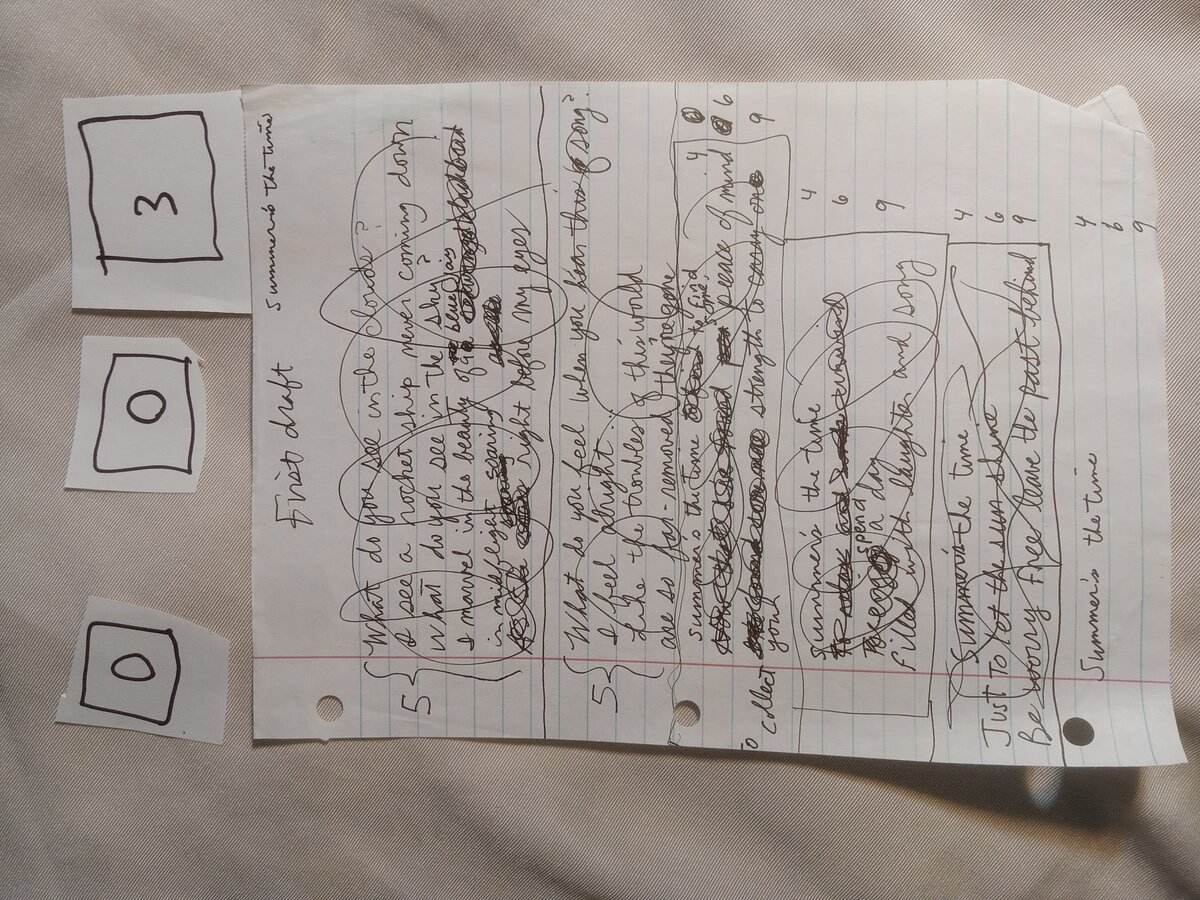 0 0 3
First draft Summer's the time
What do you see in the clouds?
I see a rocket ship never coming down
What do you see in the sky?
I marvel in the beauty of the blue as
in midflight soaring
right before my eyes
5
What do you feel when you hear this song?
I feel alright
Like the troubles of this world
are so far-removed they're gone
5
Summers the time to find 4
some peace of mind 6
To collect your strength to carry on 9
Summer's the time 4
To spend a day 6
filled with laughter and song 9
Summer's the time 4
Just To let the sun shine 6
Be worry free leave the past behind 9
Summer's the time 4
6
9